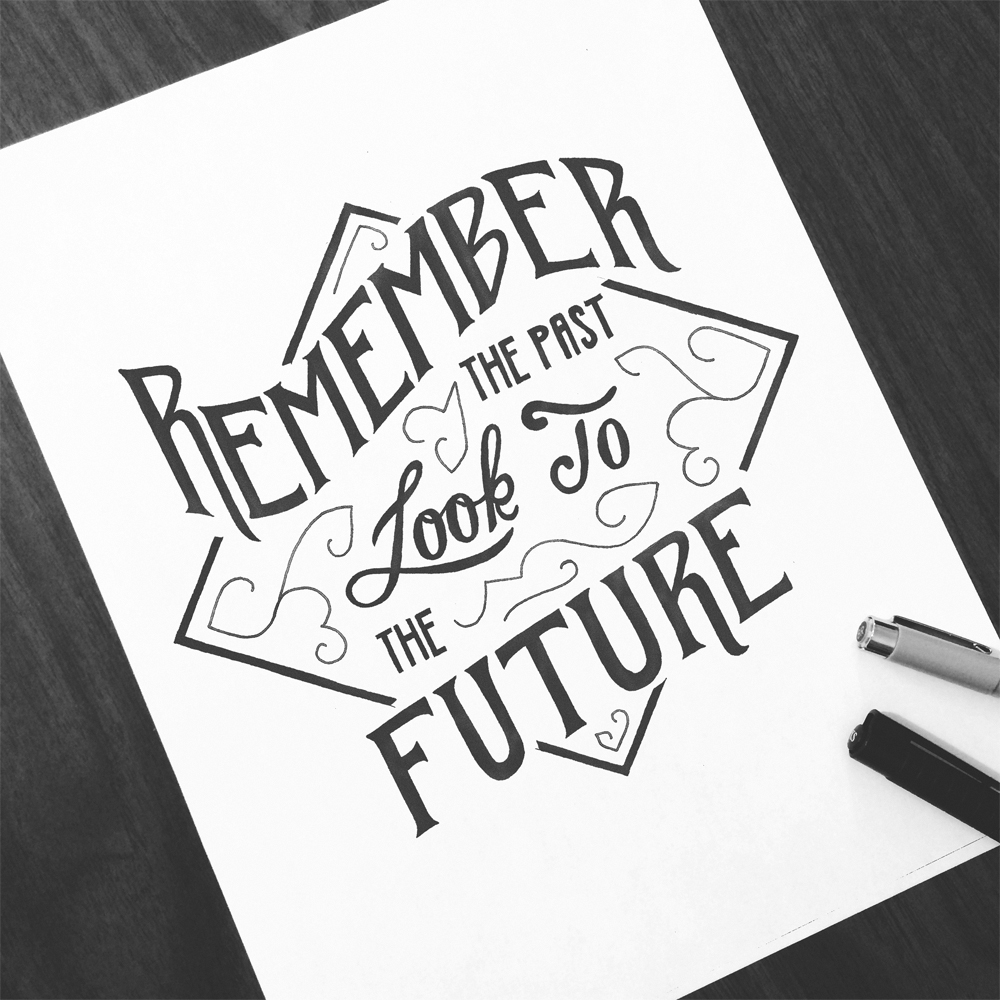 REMEMBER
THE PAST
Look To
THE
FUTURE